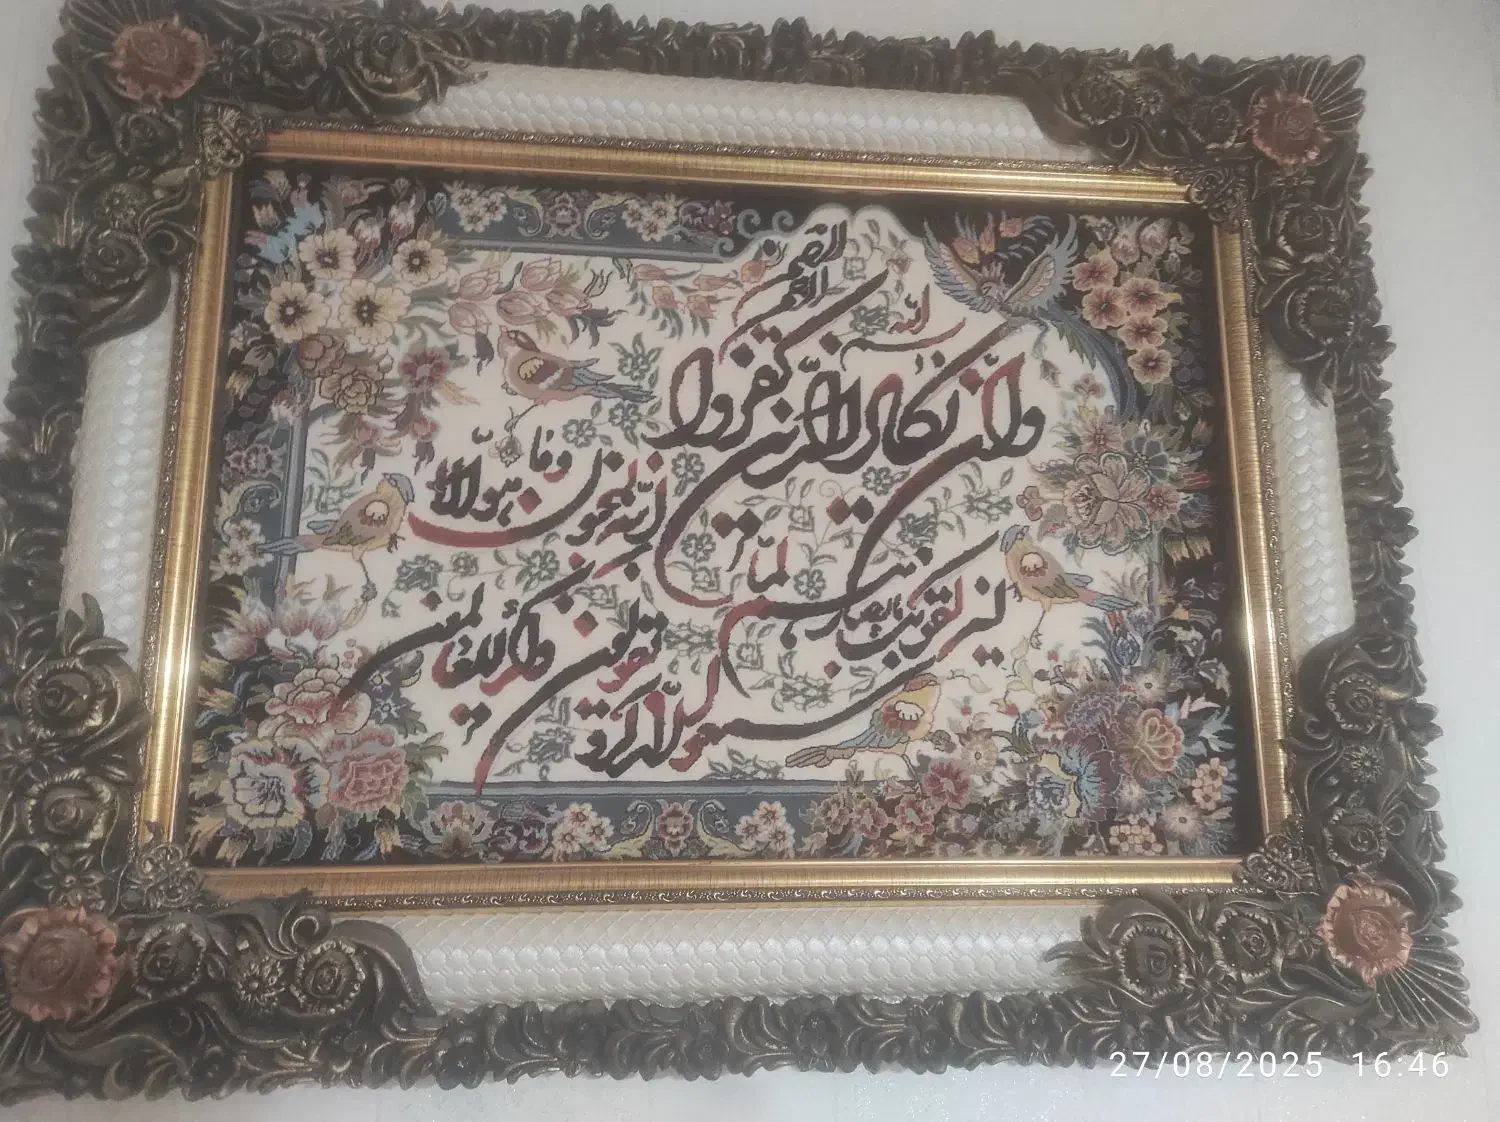 بسم الله الرحمن الرحیم
وان یکاد الذین کفروا
لیزلقونک بابصارهم لما
سمعوا الذکر و یقولون انه لمجنون و ما هو الا
ذکر للعالمین
27/08/2025 16:46